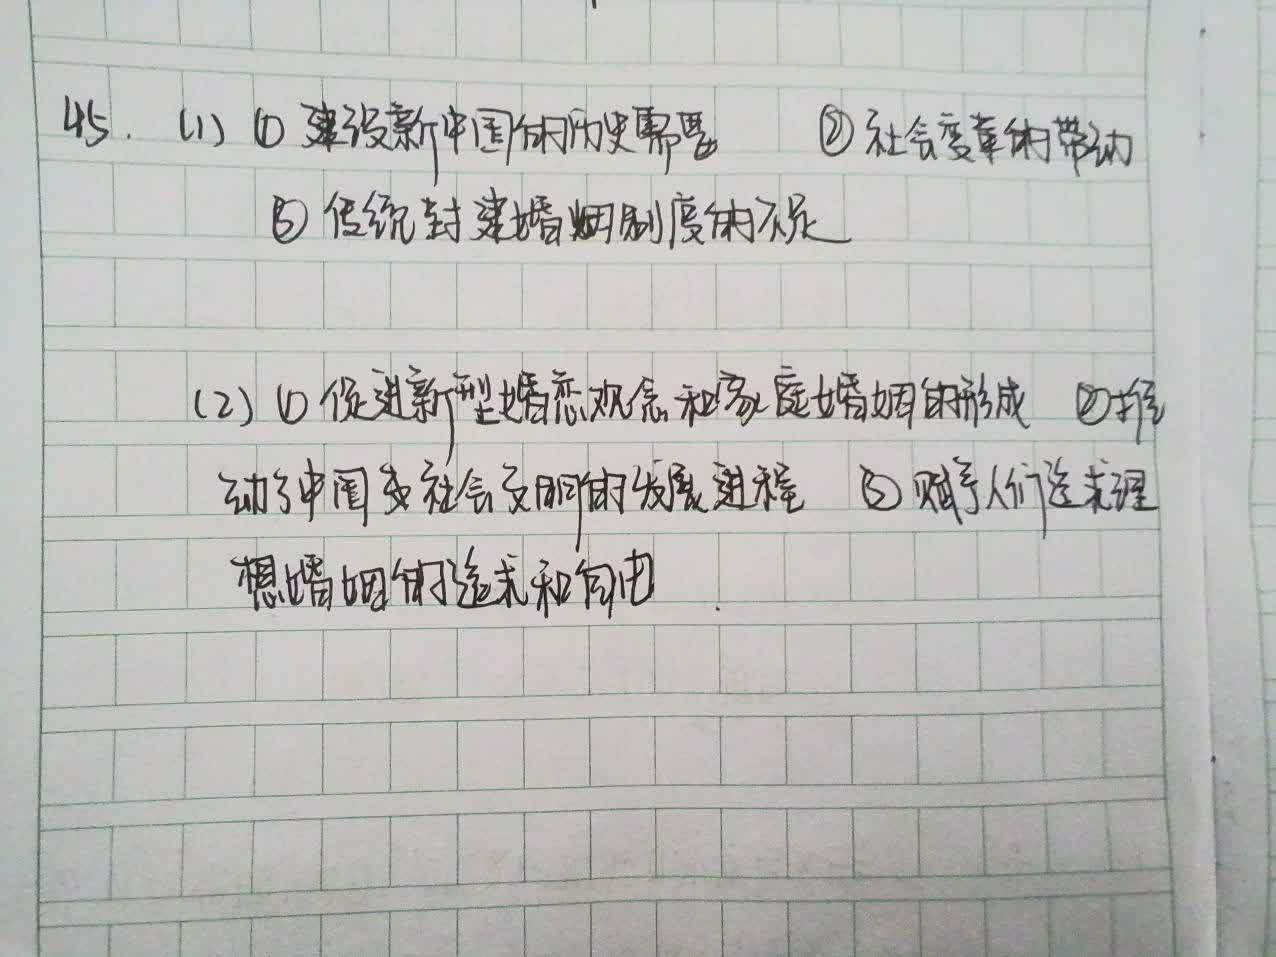 45. (1) ① 建设新中国的历史需要 ② 社会变革的带动
③ 传统封建婚姻制度的不足
(2) ① 促进新型婚恋观念和家庭婚姻的形成 ② 推
动了中国式社会文明的发展进程 ③ 赋予人们追求理
想婚姻的追求和自由